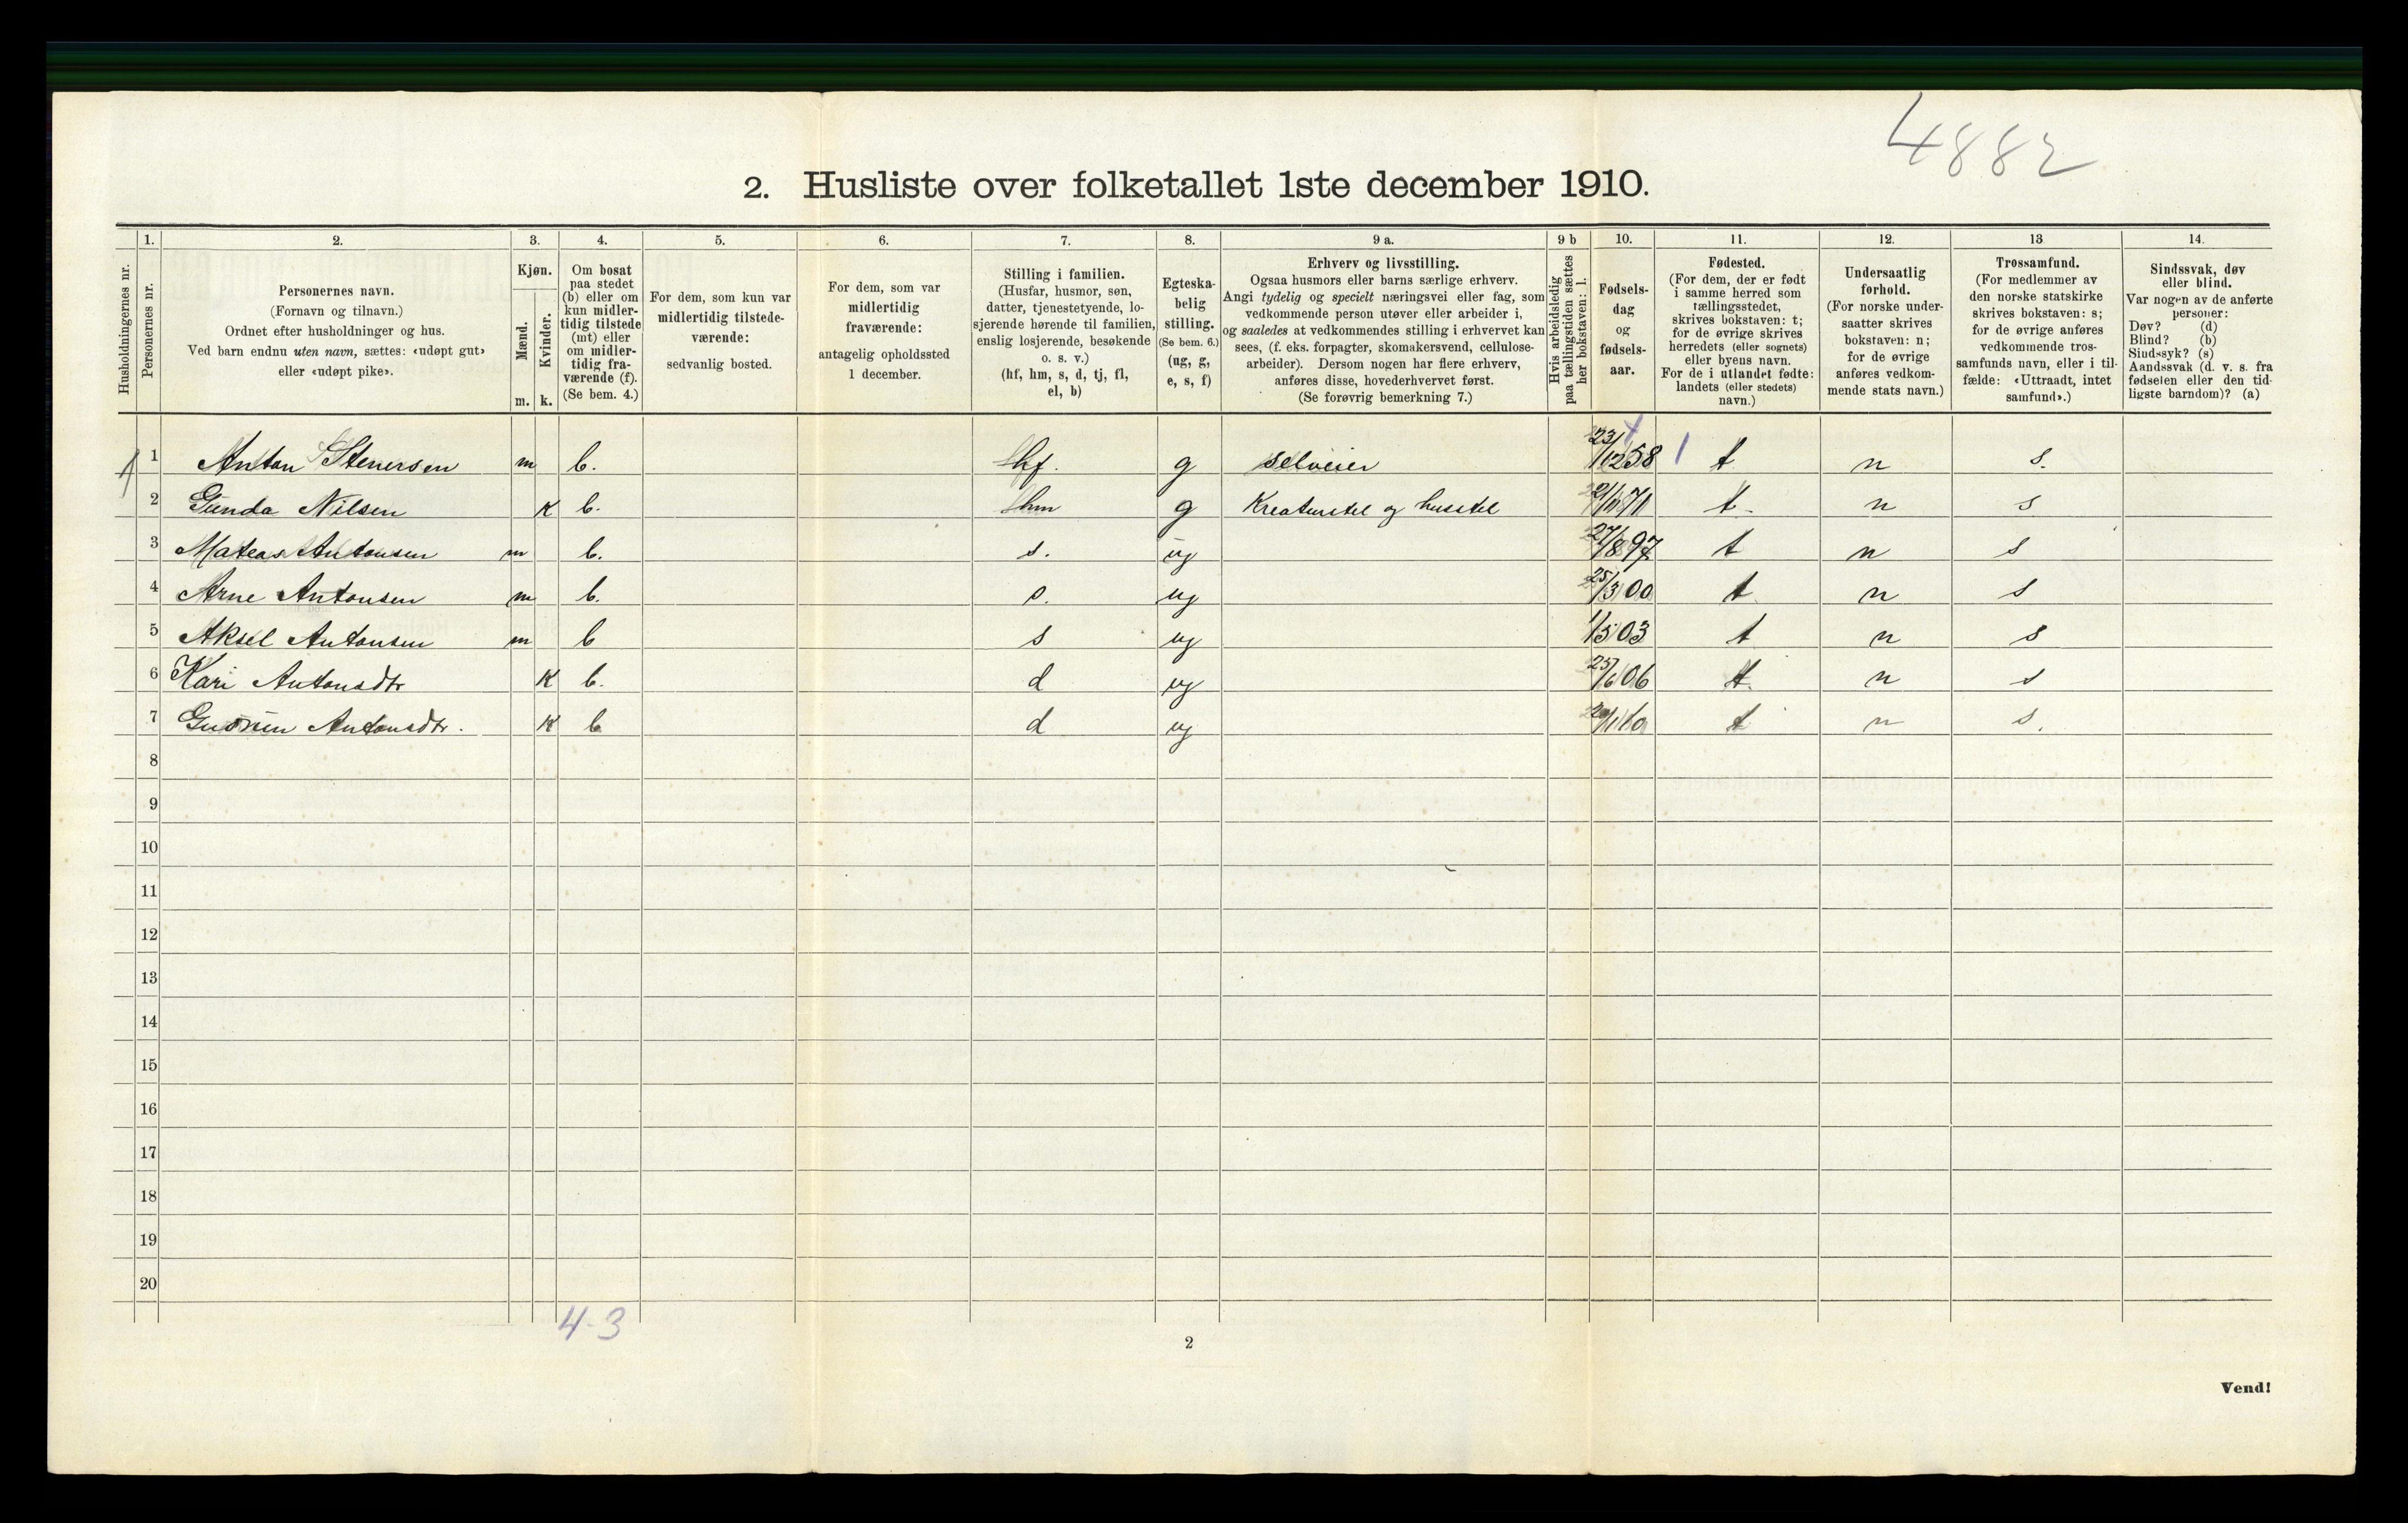 4882
2. Husliste over folketallet 1ste december 1910.
1. 2. 3. 4. 5. 6. 7. 8. 9 a. 9 b 10. 11. 12. 13 14.
Husholdningernes nr.
Personernes nr.
Personernes navn.
(Fornavn og tilnavn.)
Ordnet efter husholdninger og hus.
Ved barn endnu uten navn, sættes: «udøpt gut»
eller «udøpt pike».
Kjøn.
Mænd.
Kvinder.
m. k.
Om bosat
paa stedet
(b) eller om
kun midler-
tidig tilstede
(mt) eller
om midler-
tidig fra-
værende (f).
(Se bem. 4.)
For dem, som kun var
midlertidig tilstede-
værende:
sedvanlig bosted.
For dem, som var
midlertidig
fraværende:
antagelig opholdssted
1 december.
Stilling i familien.
(Husfar, husmor, søn,
datter, tjenestetyende, lo-
sjerende hørende til familien,
enslig losjerende, besøkende
o. s. v.)
(hf, hm, s, d, tj, fl,
el, b)
Egteska-
belig
stilling.
(Se bem. 6.)
(ug, g,
e, s, f)
Erhverv og livsstilling.
Ogsaa husmors eller barns særlige erhverv.
Angi tydelig og specielt næringsvei eller fag, som
vedkommende person utøver eller arbeider i,
og saaledes at vedkommendes stilling i erhvervet kan
sees, (f. eks. forpagter, skomakersvend, cellulose-
arbeider). Dersom nogen har flere erhverv,
anføres disse, hovederhvervet først.
(Se forøvrig bemerkning 7.)
Hvis arbeidsledig
paa tællingstiden sættes
her bokstaven: l.
Fødsels-
dag
og
fødsels-
aar.
Fødested.
(For dem, der er født
i samme herred som
tællingsstedet,
skrives bokstaven: t;
for de øvrige skrives
herredets (eller sognets)
eller byens navn.
For de i utlandet fødte:
landets (eller stedets)
navn.)
Undersaatlig
forhold.
(For norske under-
saatter skrives
bokstaven: n;
for de øvrige
anføres vedkom-
mende stats navn.)
Trossamfund.
(For medlemmer av
den norske statskirke
skrives bokstaven: s;
for de øvrige anføres
vedkommende tros-
samfunds navn, eller i til-
fælde: «Uttraadt, intet
samfund».)
Sindssvak, døv
eller blind.
Var nogen av de anførte
personer:
Døv? (d)
Blind? (b)
Sindssyk? (s)
Aandssvak (d. v. s. fra
fødselen eller den tid-
ligste barndom)? (a)
1 Anton Stenersen m b. hf. g selveier 23/12 58 t n s.
2 Gunda Nilsen K b. hm g Kreaturstel og husstel t. n s
3 Mateas Antonsen m b. s. ug 27/8 97 t n s
4 Arne Antonsen m b. s. ug 25/3 00 t n s
5 Aksel Antonsen m b s ug 1/5 03 t n s
6 Kari Antonsdtr K b. d ug 25/6 06 t. n s
7 Gudrun Antonsdtr. K b d ug t n s.
8
9
10
11
12
13
14
15
16
17
18
19
20
4-3
2
Vend!